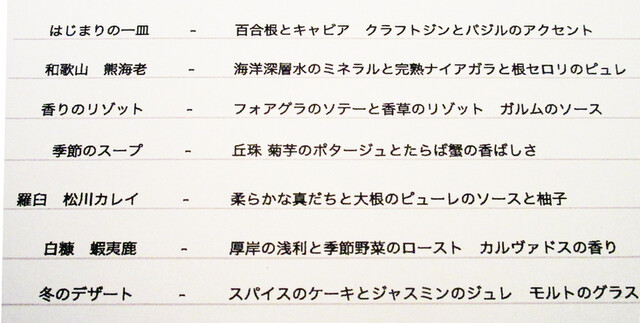 はじまりの一皿 － 百合根とキャビア　クラフトジンとバジルのアクセント
和歌山　熊海老 － 海洋深層水のミネラルと完熟ナイアガラと根セロリのピュレ
香りのリゾット － フォアグラのソテーと香草のリゾット　ガルムのソース
季節のスープ － 丘珠 菊芋のポタージュとたらば蟹の香ばしさ
羅臼　松川カレイ － 柔らかな真だちと大根のピューレのソースと柚子
白糠　蝦夷鹿 － 厚岸の浅利と季節野菜のロースト　カルヴァドスの香り
冬のデザート － スパイスのケーキとジャスミンのジュレ　モルトのグラス